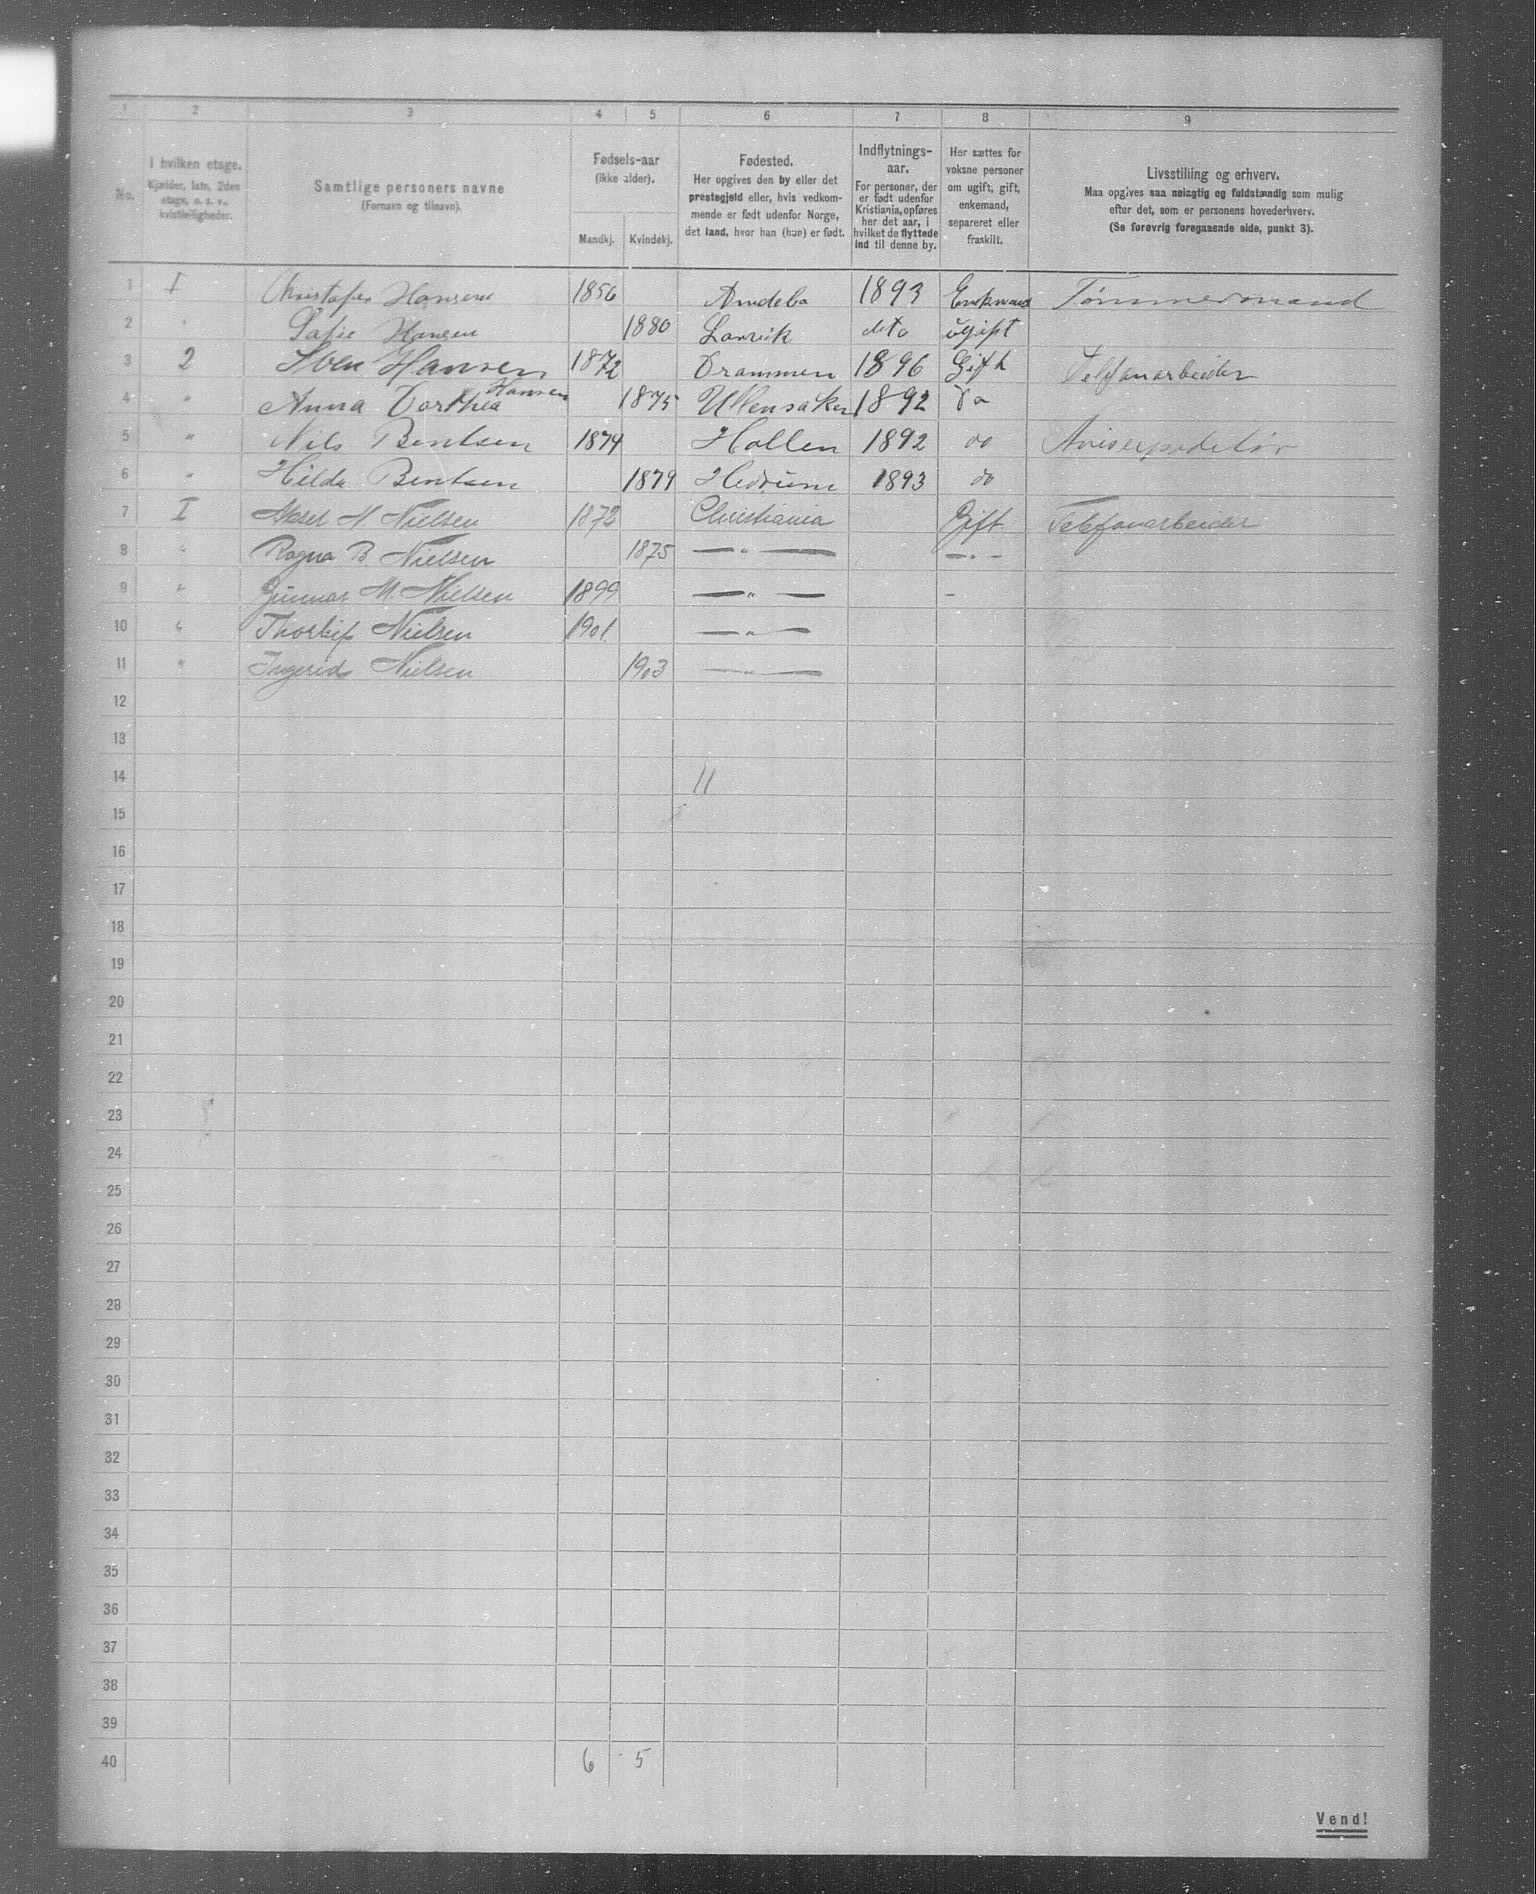 1 2 3 4 5 6 7 8 9
No.
I hvilken etage.
Kjælder, 1ste, 2den
etage, o. s. v.,
kvistleiligheder.
Samtlige personers navne
(Fornavn og tilnavn).
Fødsels-aar
(ikke alder).
Mandkj. Kvindekj.
Fødested.
Her opgives den by eller det
prestegjeld eller, hvis vedkom-
mende er født udenfor Norge,
det land, hvor han (hun) er født.
Indflytnings-
aar.
For personer, der
er født udenfor
Kristiania, opføres
her det aar, i
hvilket de flyttede
ind til denne by.
Her sættes for
voksne personer
om ugift, gift,
enkemand,
separeret eller
fraskilt.
Livsstilling og erhverv.
Maa opgives saa nøiagtig og fuldstændig som mulig
efter det, som er personens hovederhverv.
(Se forøvrig foregaaende side, punkt 3).
1 I Christofer Hansen 1856 Andebo 1893 Enkmand Tømmermand
2 " Sofie Hansen 1880 Larvik deto ugift
3 2 Iver Hansen 1872 Drammen 1896 Gift Telefonarbeider
4 " Anna Dorthea Hansen 1875 Ullensaker 1892 Do
5 " Nils Bentsen 1874 Hollen 1892 do Avisexpeditør
6 " Hilda Bentsen 1879 Hedrum 1893 do
7 I Aksel N. Nielsen 1872 Christiania Gift Telefonarbeider
8 " Ragna B. Nielsen 1875 — " — — " —
9 " Gunnar M. Nielsen 1899 — " — -
10 " Thorleif Nielsen 1901. — " —
11 " Ingerid Nielsen 1903 — " —
12
13
14 11
15
16
17
18
19
20
21
22
23
24
25
26
27
28
29
30
31
32
33
34
35
36
37
38
39
40 6 5
Vend!